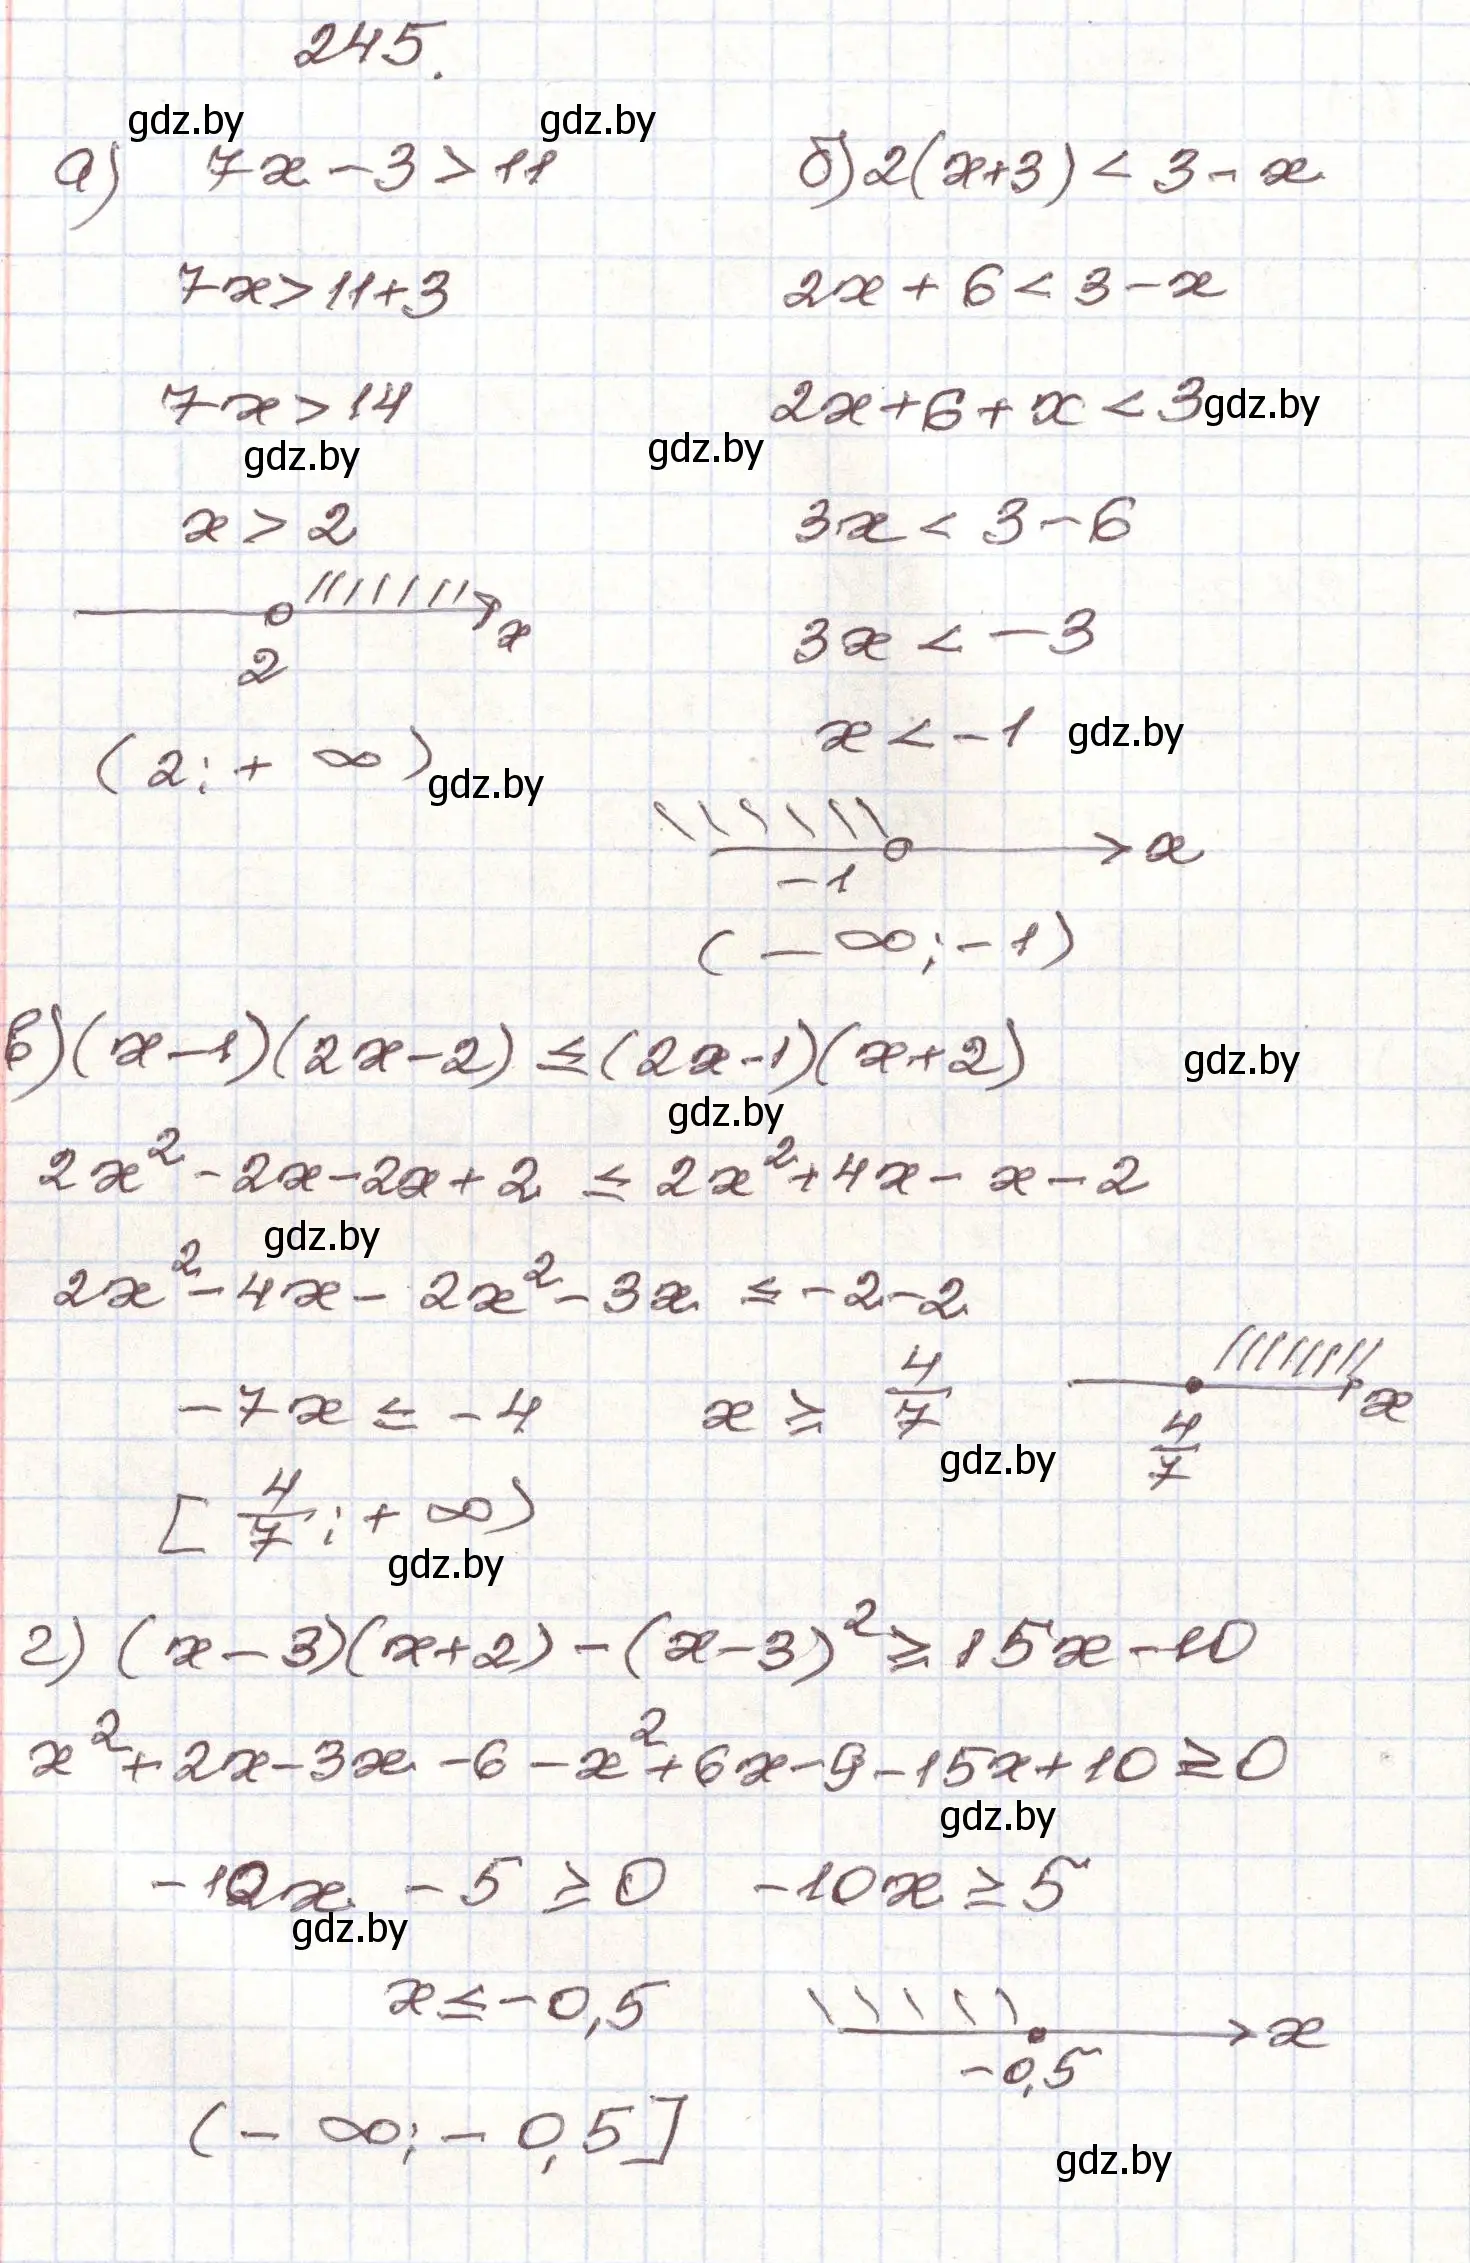 245.
gdz.by gdz.by
а) 7x - 3 > 11
7x > 11 + 3
7x > 14
gdz.by
x > 2
x
2
(2; + ∞)
gdz.by
б) 2(x+3) < 3 - x
2x + 6 < 3 - x
2x + 6 + x < 3
gdz.by
gdz.by
3x < 3 - 6
3x < - 3
x < - 1
gdz.by
x
-1
(- ∞; - 1)
в) (x - 1)(2x - 2) ≤ (2x - 1)(x + 2)
gdz.by
gdz.by
2x² - 2x - 2x + 2 ≤ 2x² + 4x - x - 2
gdz.by
2x² - 4x - 2x² - 3x ≤ - 2 - 2
-7x ≤ - 4 x ≥ 4/7
x
4/7
gdz.by
[4/7; + ∞)
gdz.by
г) (x - 3)(x + 2) - (x - 3)² ≥ 15x - 10
x² + 2x - 3x - 6 - x² + 6x - 9 - 15x + 10 ≥ 0
gdz.by
-10x - 5 ≥ 0 -10x ≥ 5
gdz.by
x ≤ - 0,5
x
-0,5
(- ∞; - 0,5]
gdz.by